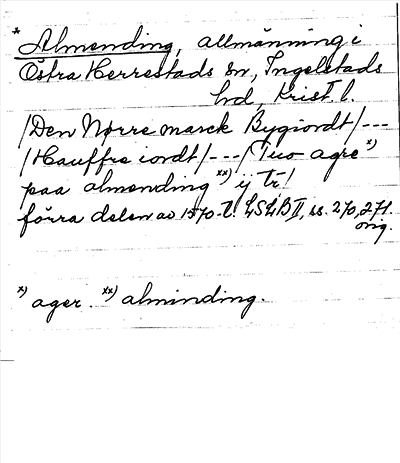 * Almending, allmänning i
Östra Herrestads sn, Ingelstads
hd, Krist. l.
/Den Nørre marck Bygiordt/---
/Hauffre iordt/---/Tuo agre x)
paa almending xx) ij Tr/
förra delen av 1570-t. LSLB II, ss. 270, 271.
orig.
x) ager. xx) alminding.